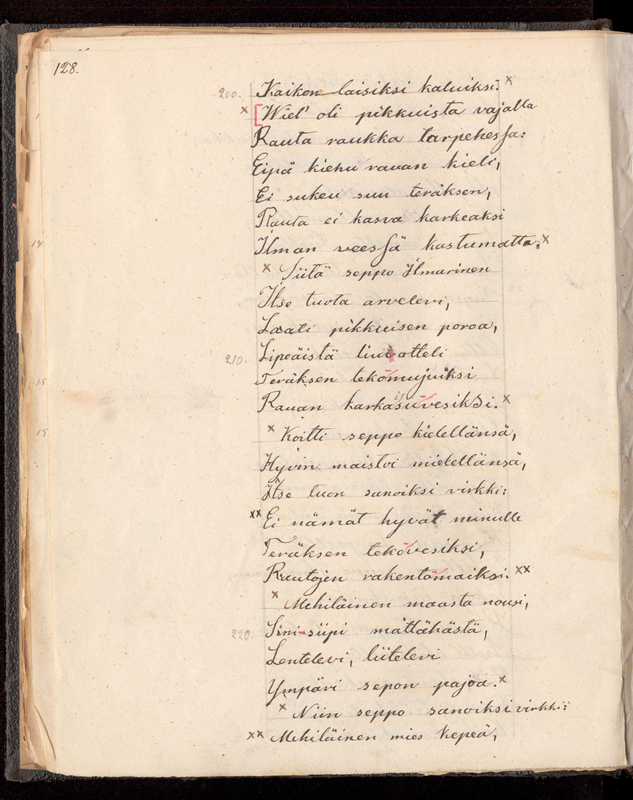 128.
200. Kaiken laisiksi kaluiksi. x
x [Wiel' oli pikkuista vajalla
Rauta raukka tarpehessa:
Eipä kiehu rauan kieli,
Ei sukeu suu teräksen,
Rauta ei kasva karkeaksi
14 Ilman veessä kastumatta. x
x Siitä seppo Ilmarinen
Itse tuota arvelevi,
Laati pikkuisen poroa,
210. Lipeäistä liuotteli
15 Teräksen tekomujuiksi
Rauan karkasuvesiksi. x
15 x Koitti seppo kielellänsä,
Hyvin maistoi mielellänsä,
Itse tuon sanoiksi virkki:
xx Ei nämät hyvät minulle
Teräksen tekovesiksi,
Rautojen rakentomaiksi. xx
x Mehiläinen maasta nousi,
220. Sini-siipi mättähästä,
Lentelevi, liitelevi
Ympäri sepon pajoa. x
x Niin seppo sanoiksi virkki:
xx Mehiläinen mies kepeä,